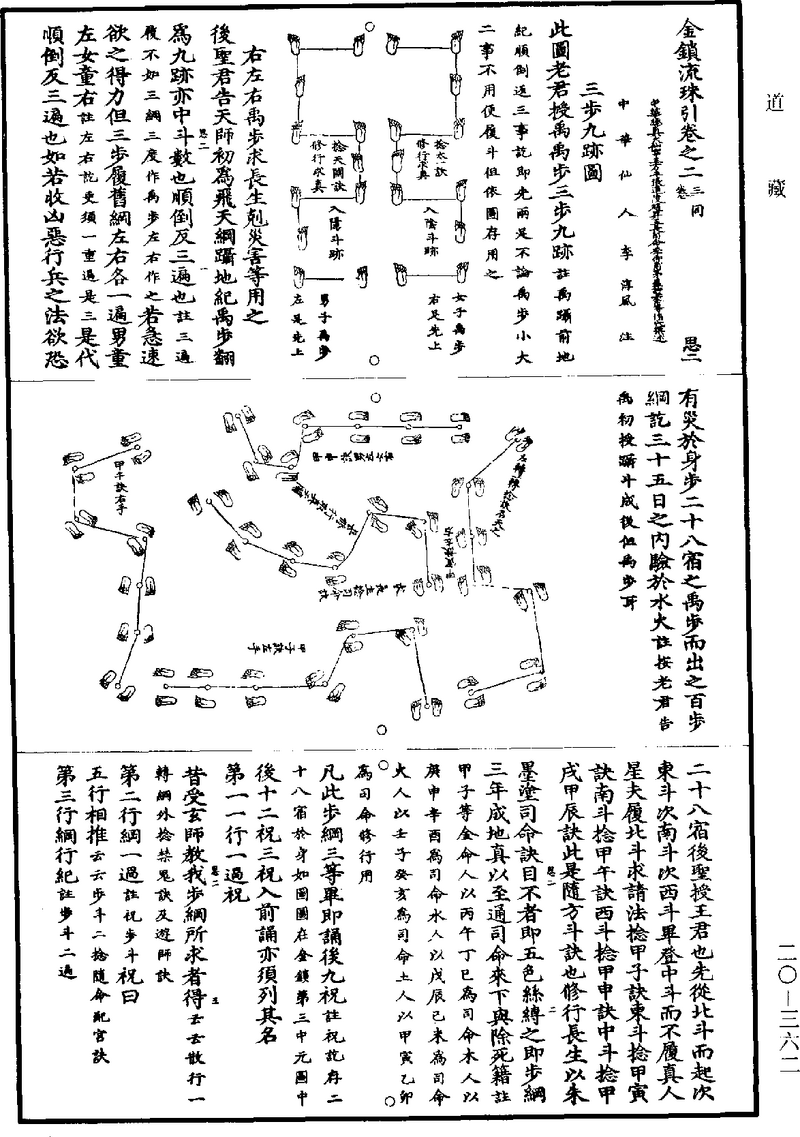 道藏
二〇—三六二
金鎖流珠引卷之二 三同卷
思二
中華仙人李淳風注
三步九跡圖
此圖老君授禹禹步三步九跡註禹躡前地
紀順倒返三事訖即先兩足不論禹步小大
二事不用便履斗但依圖存用之
女子禹步
右足先上
男子禹步
左足先上
捻太一訣
修行求真
入陰斗跡
捻天關訣
修行求真
入陽斗跡
右左右禹步求長生剋災害等用之
後聖君告天師初為飛天綱躡地紀禹步翻
為九跡亦中斗數也順倒反三遍也註三遍
履不如三綱三度作禹步左右作之若急速
欲之得力但三步履舊綱左右各一遍男童
左女童右註左右訖更須一重過是三是代
順倒反三遍也如若收凶惡行兵之法欲恐
思二
有災於身步二十八宿之禹步而出之百步
綱訖三十五日之內驗於水火註按老君告
禹初授躡斗成後但禹步耳
甲午訣右手
甲子訣左手
二十八宿後聖授王君也先從北斗而起次
東斗次南斗次西斗畢登中斗而不履真人
星夫履北斗求請法捻甲子訣東斗捻甲寅
訣南斗捻甲午訣西斗捻甲申訣中斗捻甲
戌甲辰訣此是隨方斗訣也修行長生以朱
墨塗司命訣目不者即五色絲縛之即步綱
三年成地真以至通司命來下與除死籍註
甲子等金命人以丙午丁巳為司命木人以
庚申辛酉為司命水人以戊辰己未為司命
火人以壬子癸亥為司命土人以甲寅乙卯
為司命修行用
凡此步綱三等畢即誦後九祝註祝訖存二
十八宿於身如圖圖在金鎖第三中元圖中
後十二祝三祝入前誦亦須列其名
第一一行一過祝
昔受玄師教我步綱所求者得云云散行一
轉綱外捻禁鬼訣及遊師訣
第二行綱一過註祝步斗祝曰
五行相推云云步斗二捻隨命配宮訣
第三行綱行紀註步斗二過
思二